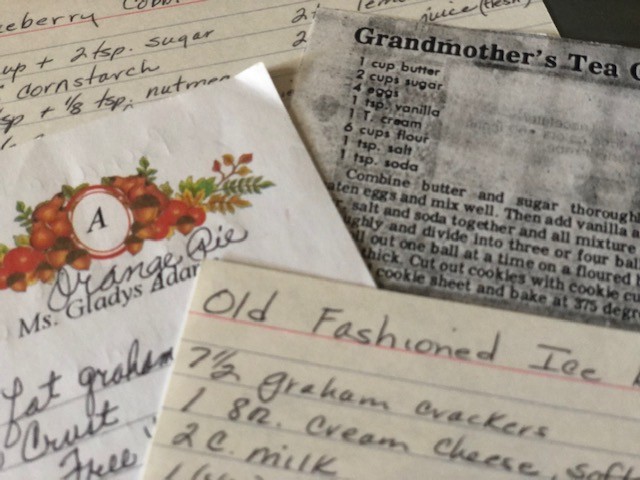 eberry Cobb
up + 2 tsp. sugar
cornstarch
tsp + 1/8 tsp. nutmeg
juice (fresh)
Grandmother's Tea C
1 cup butter
2 cups sugar
4 eggs
1 tsp. vanilla
1 T. cream
6 cups flour
1 tsp. salt
1 tsp. soda
Combine butter and sugar thorough
aten eggs and mix well. Then add vanilla a
salt and soda together and all mixture
ghly and divide into three or four ball
ll out one ball at a time on a floured
thick. Cut out cookies with cookie cu
cookie sheet and bake at 375 degre
A
Orange Pie
Ms. Gladys Adam
fat graham
Crust
Free
Old Fashioned Ice
7 1/2 graham crackers
1 8oz. cream cheese, soft
2 c. milk